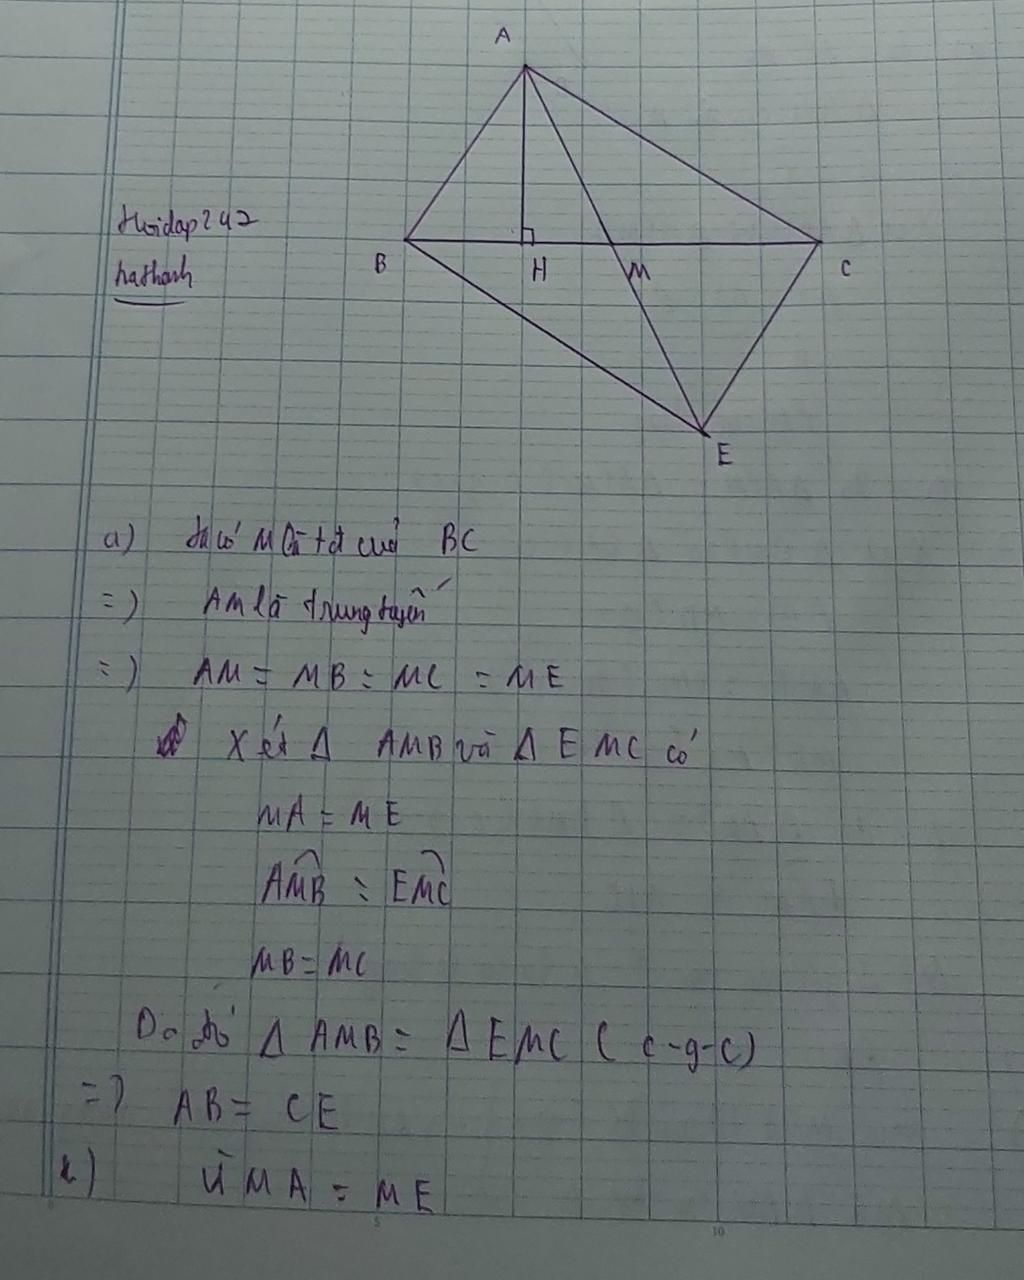 A
Hoidap247
B
H
M
C
hathanh
E
a) ta có M là tđ của BC
=) AM là trung tuyến
=) AM = MB = MC = ME
Xét Δ AMB và Δ EMC có
MA = ME
AMB = EMC
MB = MC
Do đó Δ AMB = Δ EMC ( c-g-c)
=) AB = CE
Vì MA = ME
5
10